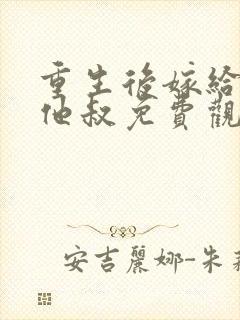 重生後嫁給
他叔免費觀
安吉麗娜-朱莉